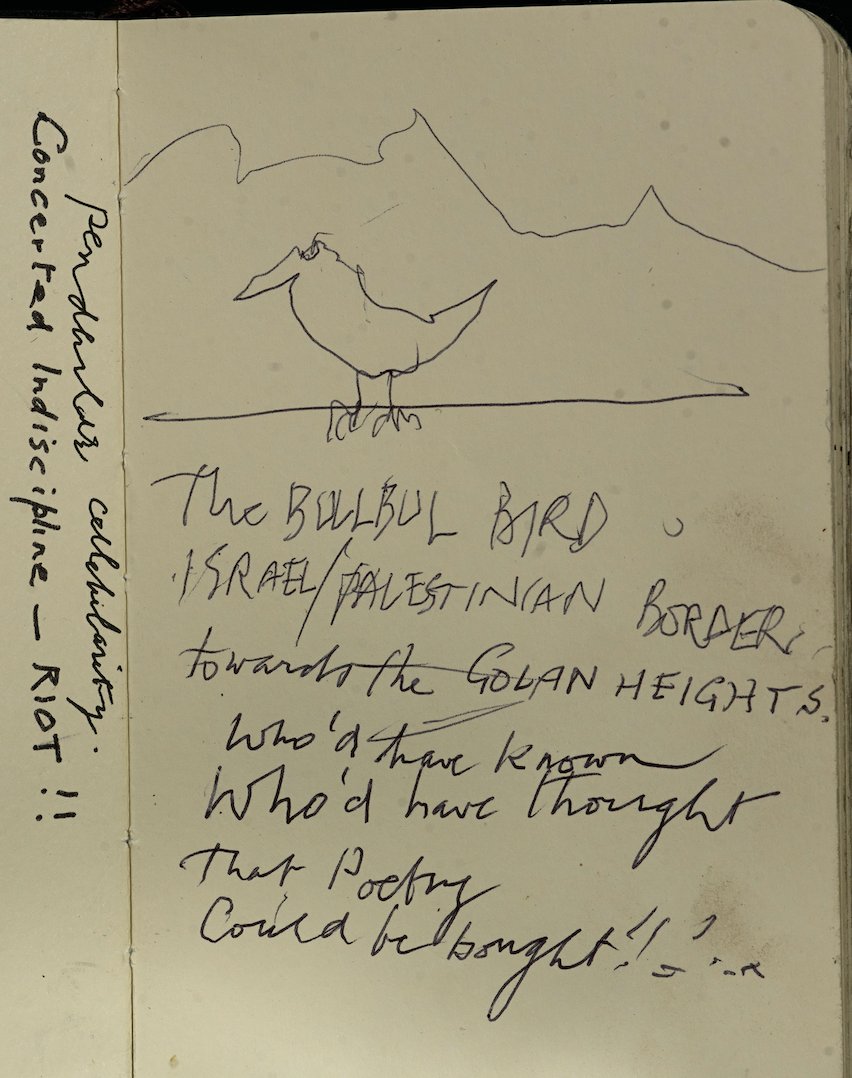 Concerted Indiscipline — RIOT!!
The BULLBUL BIRD
ISRAEL/PALESTINIAN BORDER,
towards the GOLAN HEIGHTS.
Who'd have known
Who'd have thought
That Poetry
Could be bought!!